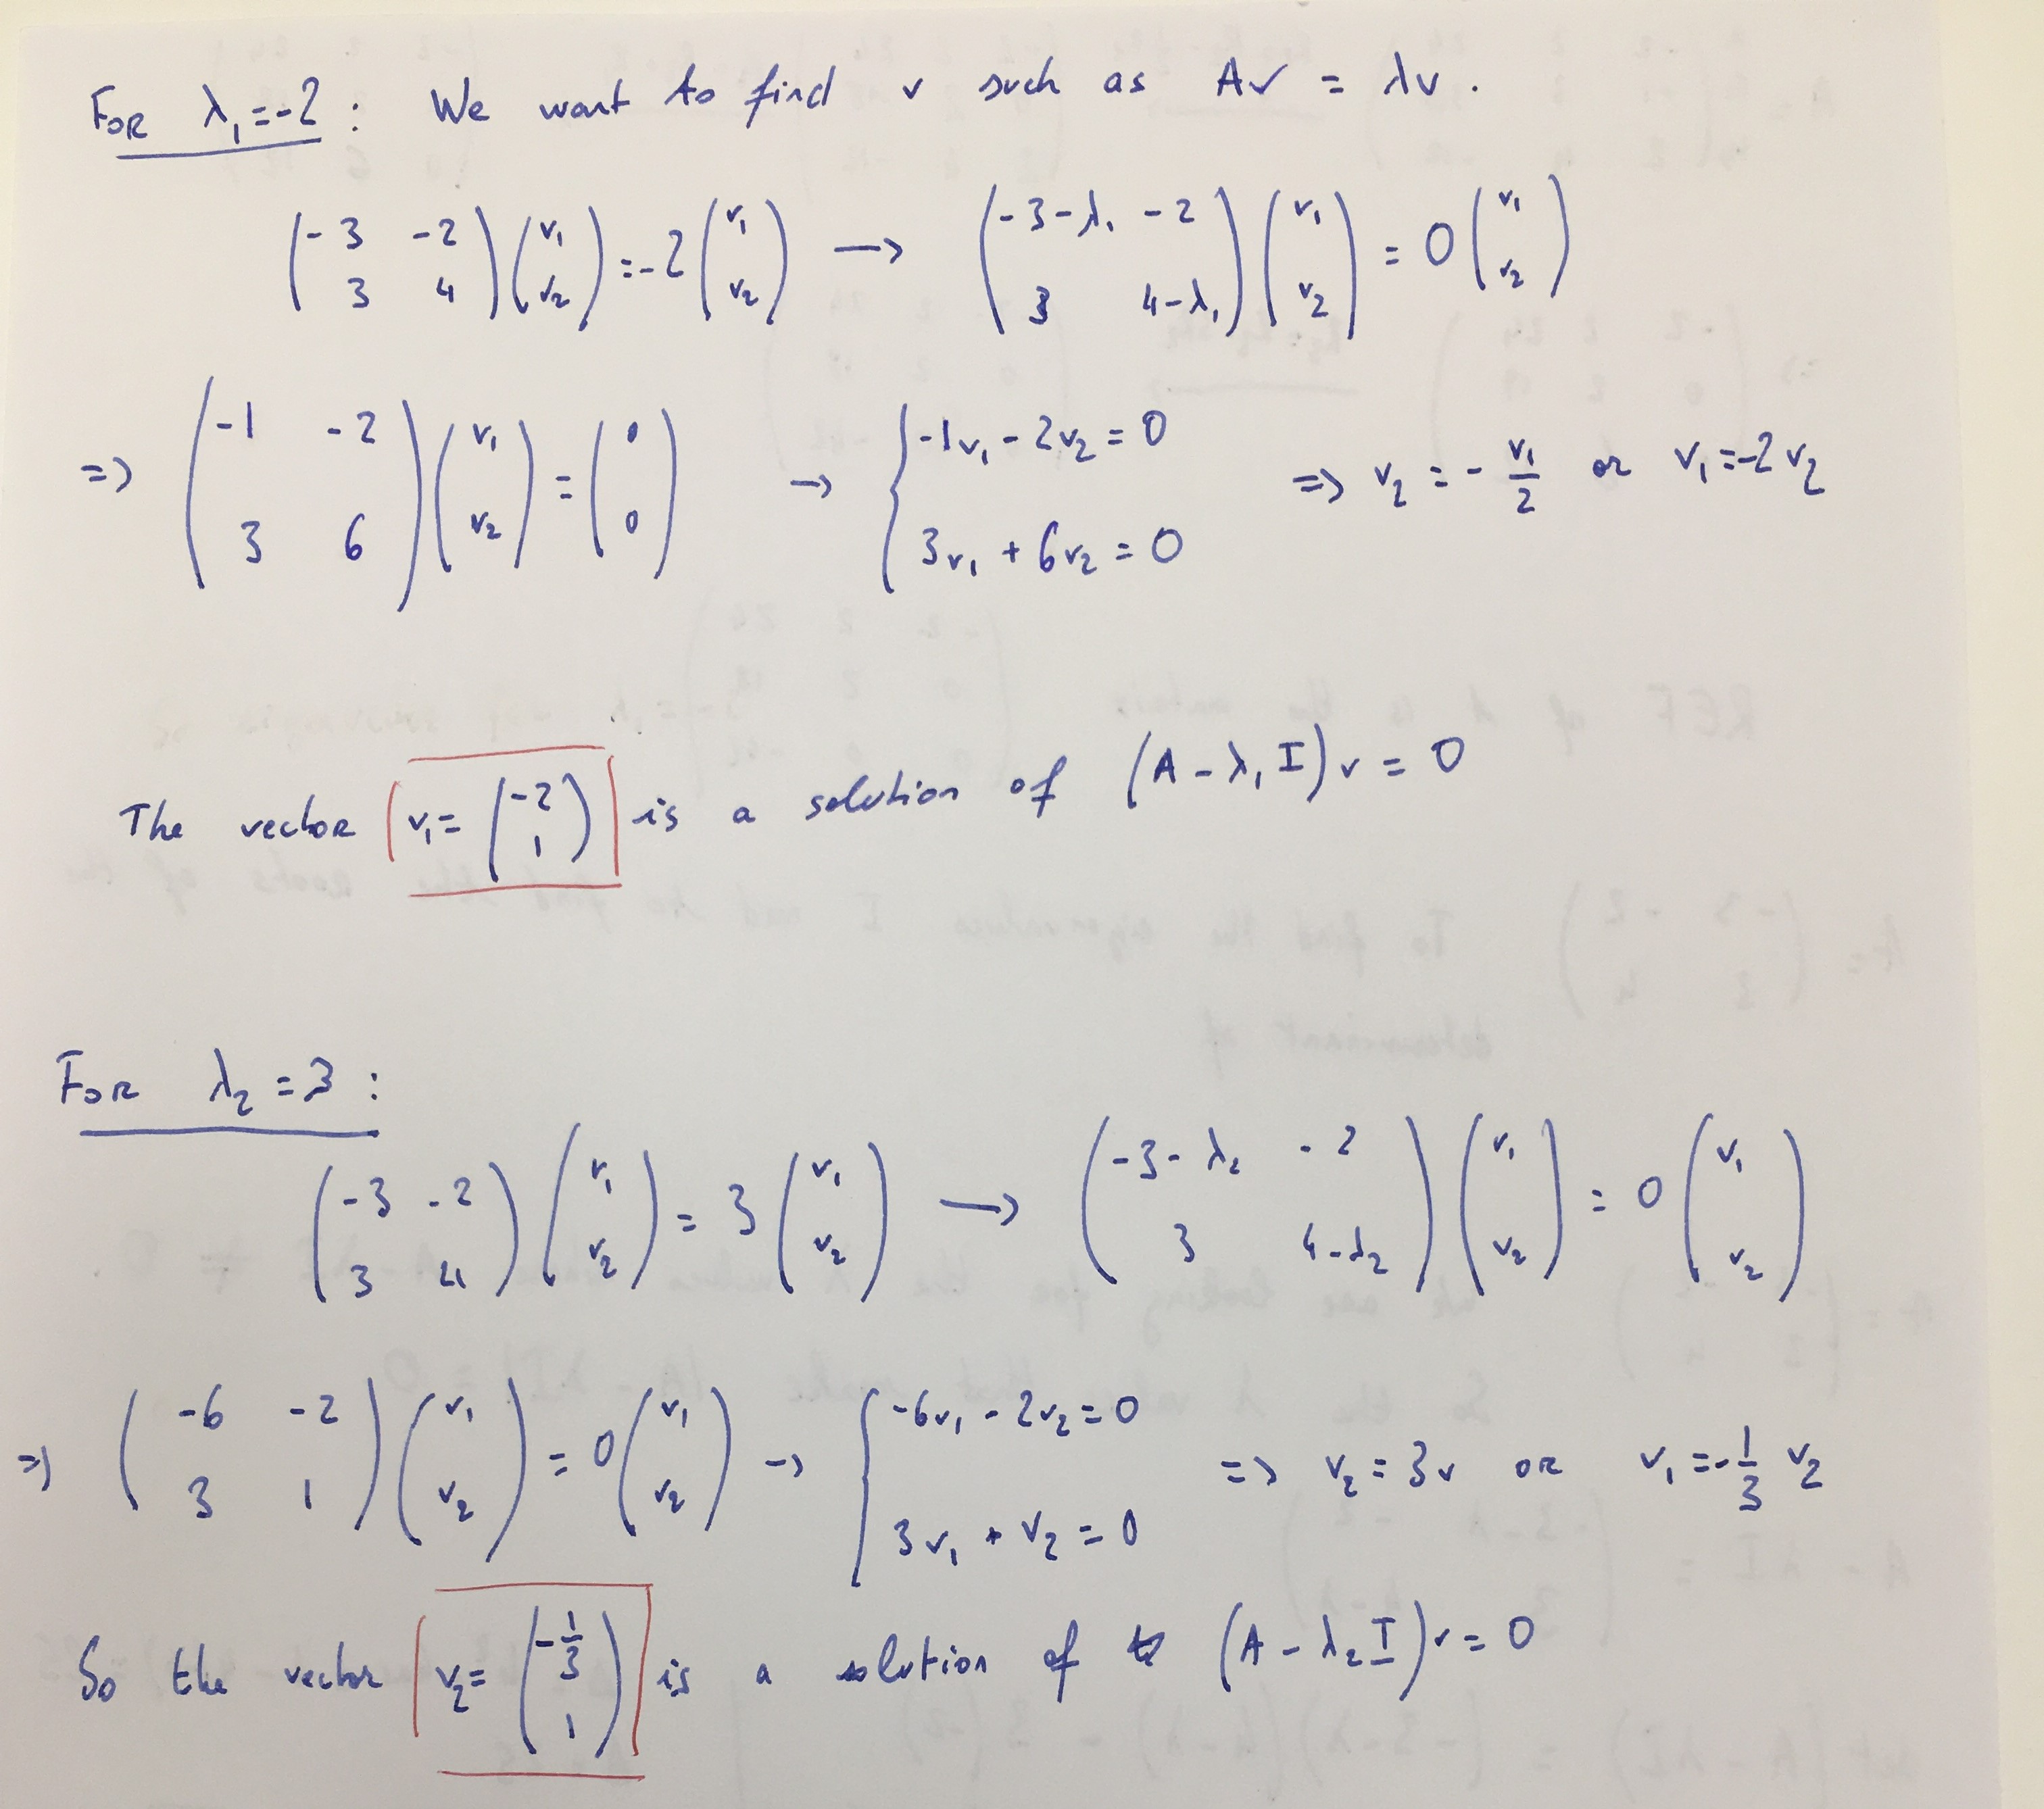 FOR λ₁=-2 : We want to find v such as Av = λv.
(-3 -2; 3 4)(v₁; v₂) = -2(v₁; v₂) → (-3-λ₁ -2; 3 4-λ₁)(v₁; v₂) = 0(v₁; v₂)
=> (-1 -2; 3 6)(v₁; v₂) = (0; 0) → { -1v₁ - 2v₂ = 0; 3v₁ + 6v₂ = 0 => v₂ = - v₁/2 or v₁ = -2v₂
The vector v₁ = (-2; 1) is a solution of (A - λ₁I)v = 0
FOR λ₂ = 3 :
(-3 -2; 3 4)(v₁; v₂) = 3(v₁; v₂) → (-3-λ₂ -2; 3 4-λ₂)(v₁; v₂) = 0(v₁; v₂)
=> (-6 -2; 3 1)(v₁; v₂) = 0(v₁; v₂) → { -6v₁ - 2v₂ = 0; 3v₁ + v₂ = 0 => v₂ = 3v or v₁ = -1/3 v₂
So the vector v₂ = (-1/3; 1) is a solution of (A - λ₂I)v = 0